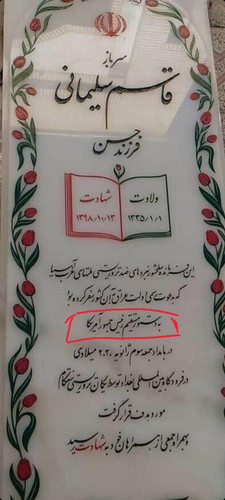 سرباز
قاسم سلیمانی
فرزند حسن
ولادت
۱۳۳۵/۱/۱
شهادت
۱۳۹۸/۱۰/۱۳
این فرمانده بلندپایه نبردهای ضد تروریستی ملتهای غرب آسیا
که به دعوت رسمی دولت عراق به آن کشور سفر کرده بود
به دستور مستقیم رئیس جمهور آمریکا
در بامداد جمعه سوم ژانویه ۲۰۲۰ میلادی
در فرودگاه بین المللی بغداد توسط یگان تروریستی
مورد هدف قرار گرفت
و همراه جمعی از همرزمان خود به شهادت رسید